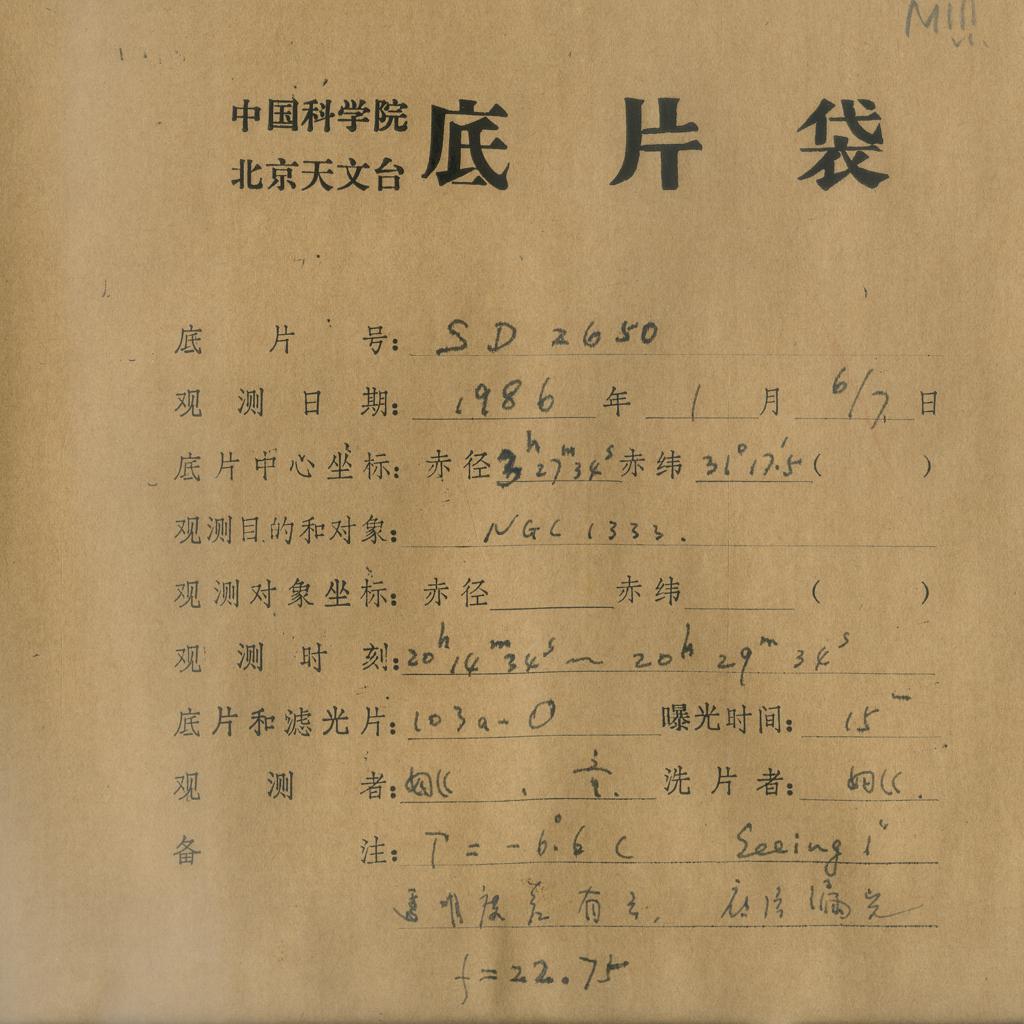 中国科学院 底片袋
北京天文台
底片号: SD 2650
观测日期: 1986 年 1 月 6/7 日
底片中心坐标: 赤径 3h 27m 34s 赤纬 31°17.'5 ( )
观测目的和对象: NGC 1333.
观测对象坐标: 赤径 赤纬 ( )
观测时刻: 20h 14m 34s ~ 20h 29m 34s
底片和滤光片: 103a-O 曝光时间: 15m
观测者: 洗片者:
备注: T = -6.°6 C Seeing 1"
度差有 漏光
f=22.75